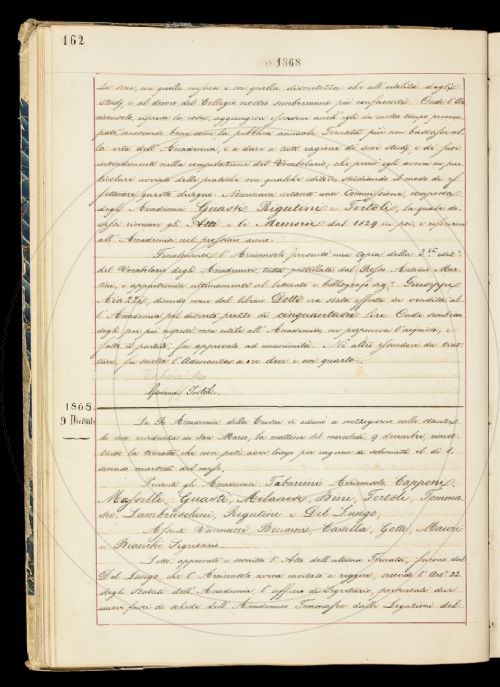 162
1868
la serie, in quella misura e con quella discretezza che all'utilità degli
studj, e al decoro del Collegio nostro sembreranno più confacenti. Onde l'Ar
ciconsolo, espose la cosa, aggiungeva essersi anch'egli da molto tempo
poté, che la pubblica annuale Tornata più non bastasse al
la vita dell'Accademia, e a dare a tutti ragione de' suoi studj e de' suoi
intendimenti nella compilazione del Vocabolario; che perciò egli aveva in par
ticolare avviato delle pratiche con qualche editore studiando il modo di ef
fettuare questo disegno. Nominava intanto una Commissione, composta
degli Accademici Guasti, Rigutini e Tortoli, la quale do
vesse riscontrare gli Atti e le Memorie dal 1829 in poi, e riferirne
all'Accademia nel prossimo anno.
Finalmente l'Arciconsolo presentò una copia della 3.ª ediz.
del Vocabolario degli Accademici, tutta postillata dal Rosso Antonio Mar
tini, e appartenuta ultimamente al letterato e bibliografo sig.r Giuseppe
Aiazzi, dicendo come dal libraio Dotti era stata offerta in vendita al
l'Accademia pel discreto prezzo di cinquantasei lire. Onde sembran
dogli per più rispetti cosa utile all'Accademia, ne proponeva l'acquisto, e
fatto il partito, fu approvato ad unanimità. Nè altro essendovi da trat
tare, fu sciolta l'Adunanza a ore dieci e un quarto.
Giovanni Tortoli
1868
9 Dicembre
La R. Accademia della Crusca si aduna a mezzogiorno nelle stanze
di sua residenza in San Marco, la mattina del mercoledì, 9 decembre, rimet
tendo la tornata che non potè aver luogo per cagione di solennità il dì 8,
secondo martedì del mese.
Presenti gli Accademici Tabarrini Arciconsolo, Capponi,
Masselli, Guasti, Milanesi, Bini, Tortoli, Tomma
seo, Lambruschini, Rigutini e Del Lungo,
Assenti Vannucci, Bonaini, Casella, Gotti, Mauri
e Bianchi Segretario.
Letto, approvato e firmato l'Atto dell'ultima Tornata, furono dal
Del Lungo, che l'Arciconsolo aveva invitato a reggere, secondo l'Art.º 22
degli Statuti dell'Accademia, l'ufficio di Segretario, presentate due
nuovi fasci di schede dell'Accademico Tommaseo dalle Legazioni del